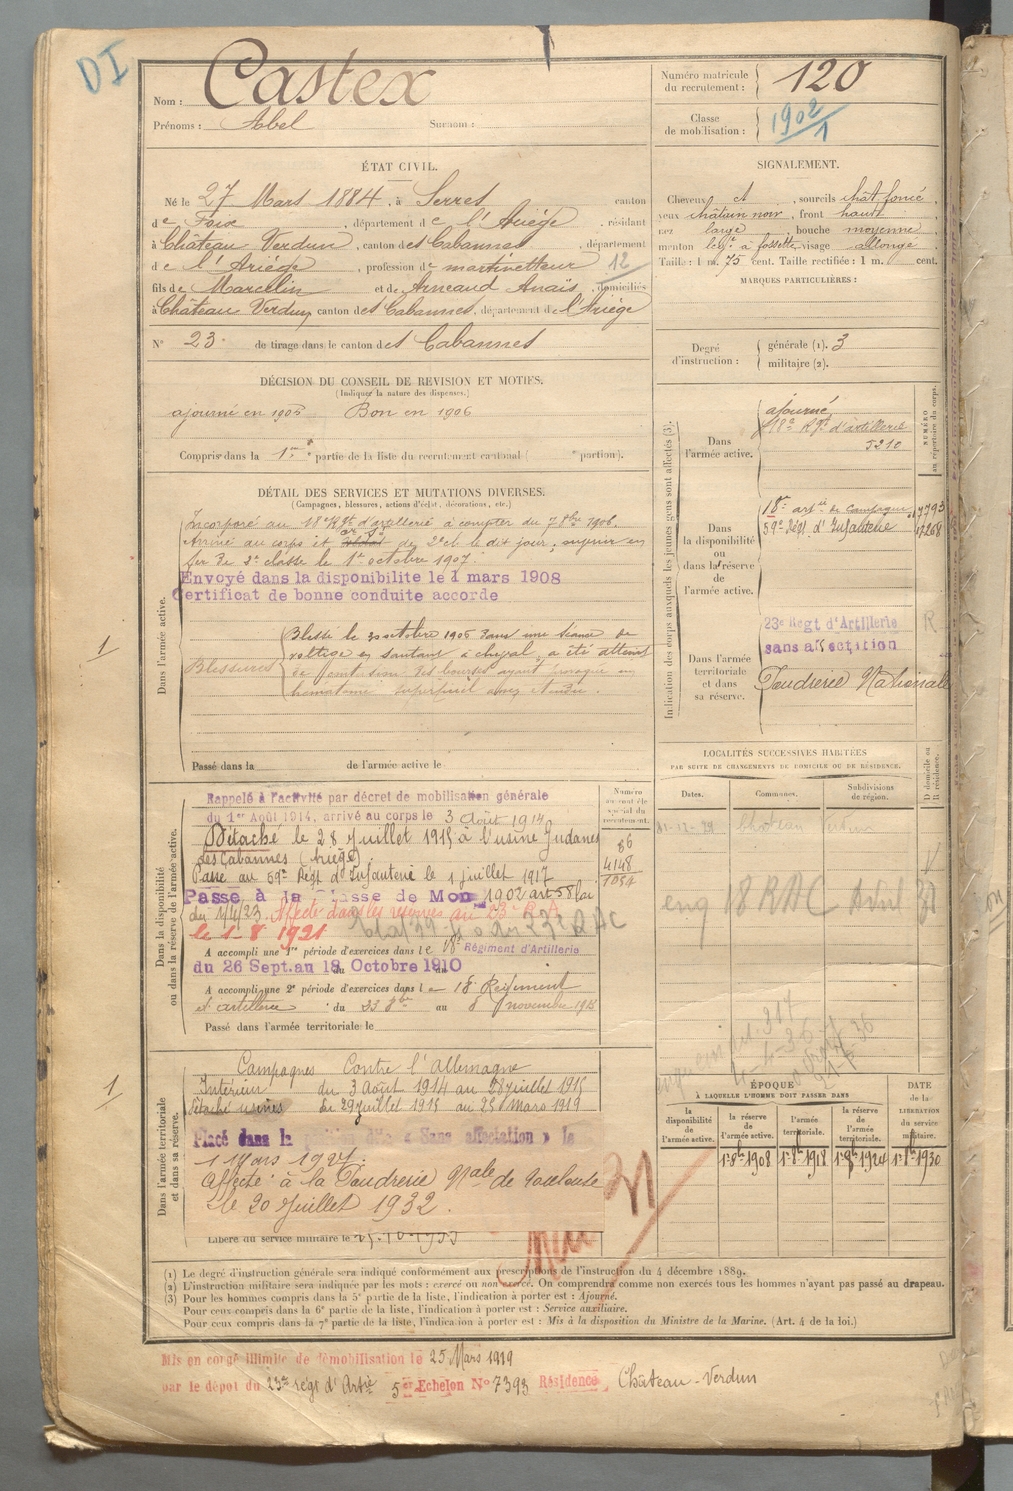 DI
Nom : Castex
Prénoms : Abel Surnom :
Numéro matricule du recrutement : 120
Classe de mobilisation : 1902/1
ÉTAT CIVIL.
Né le 27 Mars 1884, à Serres canton
de Foix, département de l'Ariège, résidant
à Château Verdun, canton des Cabannes, département
de l'Ariège, profession de martinetteur 12
fils de Marcelin et de Arneaud Anaïs, domiciliés
à Château Verdun, canton des Cabannes, département de l'Ariège
N° 23 de tirage dans le canton des Cabannes
SIGNALEMENT.
Cheveux et, sourcils chât foncé,
yeux châtain noir, front haut,
nez large, bouche moyenne,
menton à fossette, visage allongé
Taille : 1 m. 75 cent. Taille rectifiée : 1 m. cent.
MARQUES PARTICULIÈRES :
Degré d'instruction : générale (1). 3
militaire (2).
DÉCISION DU CONSEIL DE REVISION ET MOTIFS.
(Indiquer la nature des dispenses.)
ajourné en 1905 Bon en 1906
Compris dans la 1re partie de la liste du recrutement cantonal ( e portion).
DÉTAIL DES SERVICES ET MUTATIONS DIVERSES.
(Campagnes, blessures, actions d'éclat, décorations, etc.)
Dans l'armée active.
Incorporé au 18e Rgt d'artillerie à compter du 7 8bre 1906.
Arrivé au corps et de 2e cl le dit jour,
le 1er octobre 1907.
Envoyé dans la disponibilite le 1 mars 1908
Certificat de bonne conduite accorde
Blessures
Blessé le 30 octobre 1906 dans une séance de
voltige en sautant à cheval, a été atteint
des bourses ayant provoqué un
hématome superficiel assez étendu
Passé dans la de l'armée active le
Indication des corps auxquels les jeunes gens sont affectés (3).
NUMÉRO au répertoire du corps.
Dans l'armée active.
ajourné
18e Rgt d'artillerie
5210
Dans la disponibilité ou dans la réserve de l'armée active.
18e artie de Campagne
59e Régt d'Infanterie
Dans l'armée territoriale et dans sa réserve.
23e Regt d'Artillerie R
sans affectation
Poudrerie Nationale
LOCALITÉS SUCCESSIVES HABITÉES
PAR SUITE DE CHANGEMENTS DE DOMICILE OU DE RÉSIDENCE.
Dates. Communes. Subdivisions de région. D domicile ou R résidence.
Château Verdun
18 RAC
Dans la disponibilité ou dans la réserve de l'armée active.
Rappelé à l'activité par décret de mobilisation générale
du 1er Août 1914, arrivé au corps le 3 Août 1914
Détaché le 28 Juillet 1915 à l'usine
des Cabannes (Ariège)
Passé au 59e Régt d'Infanterie le 1 juillet 1917
Passé à la Classe de Mob 1902 art 58 loi
du 1/4/23. Affecté dans les réserves au 23e R A
le 1-8 1921
A accompli une 1re période d'exercices dans le 18e Régiment d'Artillerie
du 26 Sept. au 12 Octobre 1910
A accompli une 2e période d'exercices dans le 18e Régiment
d'artillerie du 23 8bre au 8 novembre
Passé dans l'armée territoriale le
Numéro au contrôle spécial du recrutement.
86
4148
1054
Dans l'armée territoriale et dans sa réserve.
Campagnes Contre l'Allemagne
Intérieur du 3 août 1914 au 28 juillet 1915
Détaché usines du 29 juillet 1915 au 25 Mars 1919
Placé dans la position dite « Sans affectation » le
1 Mars 1927.
Affecté à la Poudrerie Nale de Toulouse
le 20 Juillet 1932.
Libéré du service militaire le
ÉPOQUE
À LAQUELLE L'HOMME DOIT PASSER DANS
la disponibilité de l'armée active.
la réserve de l'armée active.
l'armée territoriale.
la réserve de l'armée territoriale.
DATE de la LIBÉRATION du service militaire.
1er 8bre 1908 1er 8bre 1918 1er 8bre 1924 1er 8bre 1930
(1) Le degré d'instruction générale sera indiqué conformément aux prescriptions de l'instruction du 4 décembre 1889.
(2) L'instruction militaire sera indiquée par les mots : exercé ou non exercé. On comprendra comme non exercés tous les hommes n'ayant pas passé au drapeau.
(3) Pour les hommes compris dans la 5e partie de la liste, l'indication à porter est : Ajourné.
Pour ceux compris dans la 6e partie de la liste, l'indication à porter est : Service auxiliaire.
Pour ceux compris dans la 7e partie de la liste, l'indication à porter est : Mis à la disposition du Ministre de la Marine. (Art. 4 de la loi.)
Mis en congé illimité de démobilisation le 25 Mars 1919
par le dépot du 23e régt d'Artie 5er Echelon N° 7393 Résidence Château-Verdun